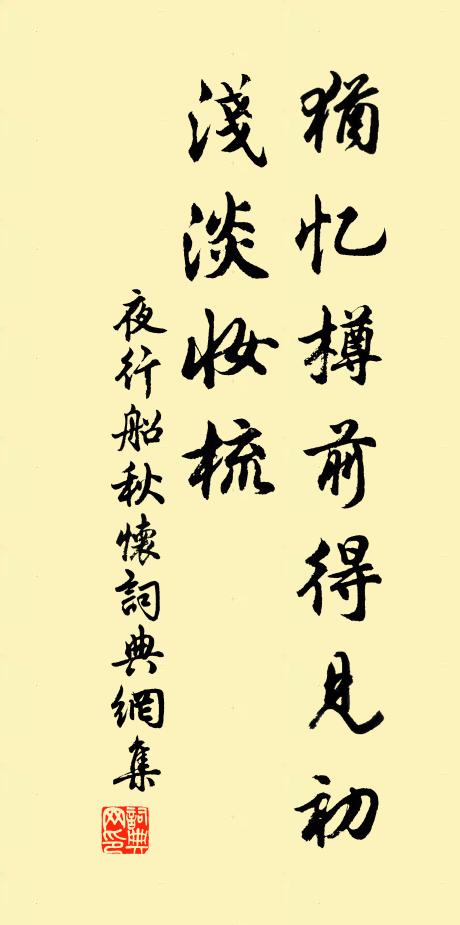 猶忆樽前得見初
淺淡妆梳
夜行船秋懷詞典網集
詞典网印